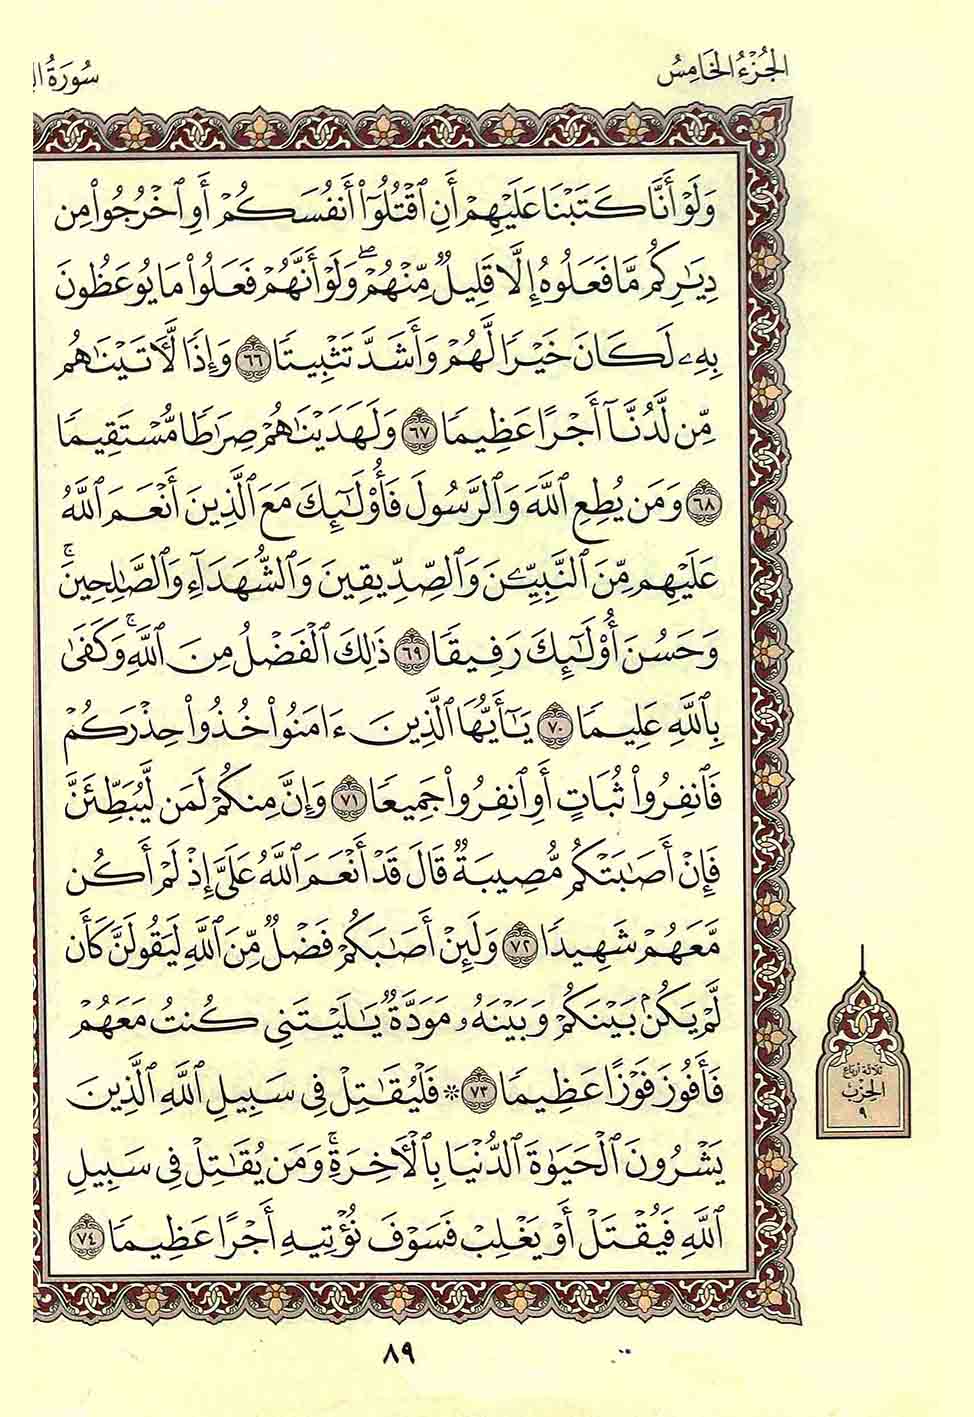 الجُزْءُ الخَامِسُ
سُورَةُ
وَلَوْ أَنَّا كَتَبْنَا عَلَيْهِمْ أَنِ ٱقْتُلُوٓا۟ أَنفُسَكُمْ أَوِ ٱخْرُجُوا۟ مِن
دِيَـٰرِكُم مَّا فَعَلُوهُ إِلَّا قَلِيلٌ مِّنْهُمْ ۖ وَلَوْ أَنَّهُمْ فَعَلُوا۟ مَا يُوعَظُونَ
بِهِۦ لَكَانَ خَيْرًا لَّهُمْ وَأَشَدَّ تَثْبِيتًا ٦٦ وَإِذًا لَّـَٔاتَيْنَـٰهُم
مِّن لَّدُنَّآ أَجْرًا عَظِيمًا ٦٧ وَلَهَدَيْنَـٰهُمْ صِرَٰطًا مُّسْتَقِيمًا
٦٨ وَمَن يُطِعِ ٱللَّهَ وَٱلرَّسُولَ فَأُو۟لَـٰٓئِكَ مَعَ ٱلَّذِينَ أَنْعَمَ ٱللَّهُ
عَلَيْهِم مِّنَ ٱلنَّبِيِّـۧنَ وَٱلصِّدِّيقِينَ وَٱلشُّهَدَآءِ وَٱلصَّـٰلِحِينَ ۚ
وَحَسُنَ أُو۟لَـٰٓئِكَ رَفِيقًا ٦٩ ذَٰلِكَ ٱلْفَضْلُ مِنَ ٱللَّهِ ۚ وَكَفَىٰ
بِٱللَّهِ عَلِيمًا ٧٠ يَـٰٓأَيُّهَا ٱلَّذِينَ ءَامَنُوا۟ خُذُوا۟ حِذْرَكُمْ
فَٱنفِرُوا۟ ثُبَاتٍ أَوِ ٱنفِرُوا۟ جَمِيعًا ٧١ وَإِنَّ مِنكُمْ لَمَن لَّيُبَطِّئَنَّ
فَإِنْ أَصَـٰبَتْكُم مُّصِيبَةٌ قَالَ قَدْ أَنْعَمَ ٱللَّهُ عَلَىَّ إِذْ لَمْ أَكُن
مَّعَهُمْ شَهِيدًا ٧٢ وَلَئِنْ أَصَـٰبَكُمْ فَضْلٌ مِّنَ ٱللَّهِ لَيَقُولَنَّ كَأَن
لَّمْ تَكُنۢ بَيْنَكُمْ وَبَيْنَهُۥ مَوَدَّةٌ يَـٰلَيْتَنِى كُنتُ مَعَهُمْ
فَأَفُوزَ فَوْزًا عَظِيمًا ٧٣ * فَلْيُقَـٰتِلْ فِى سَبِيلِ ٱللَّهِ ٱلَّذِينَ
يَشْرُونَ ٱلْحَيَوٰةَ ٱلدُّنْيَا بِٱلْـَٔاخِرَةِ ۚ وَمَن يُقَـٰتِلْ فِى سَبِيلِ
ٱللَّهِ فَيُقْتَلْ أَوْ يَغْلِبْ فَسَوْفَ نُؤْتِيهِ أَجْرًا عَظِيمًا ٧٤
ثلاثة أرباع
الحزب
٩
٨٩